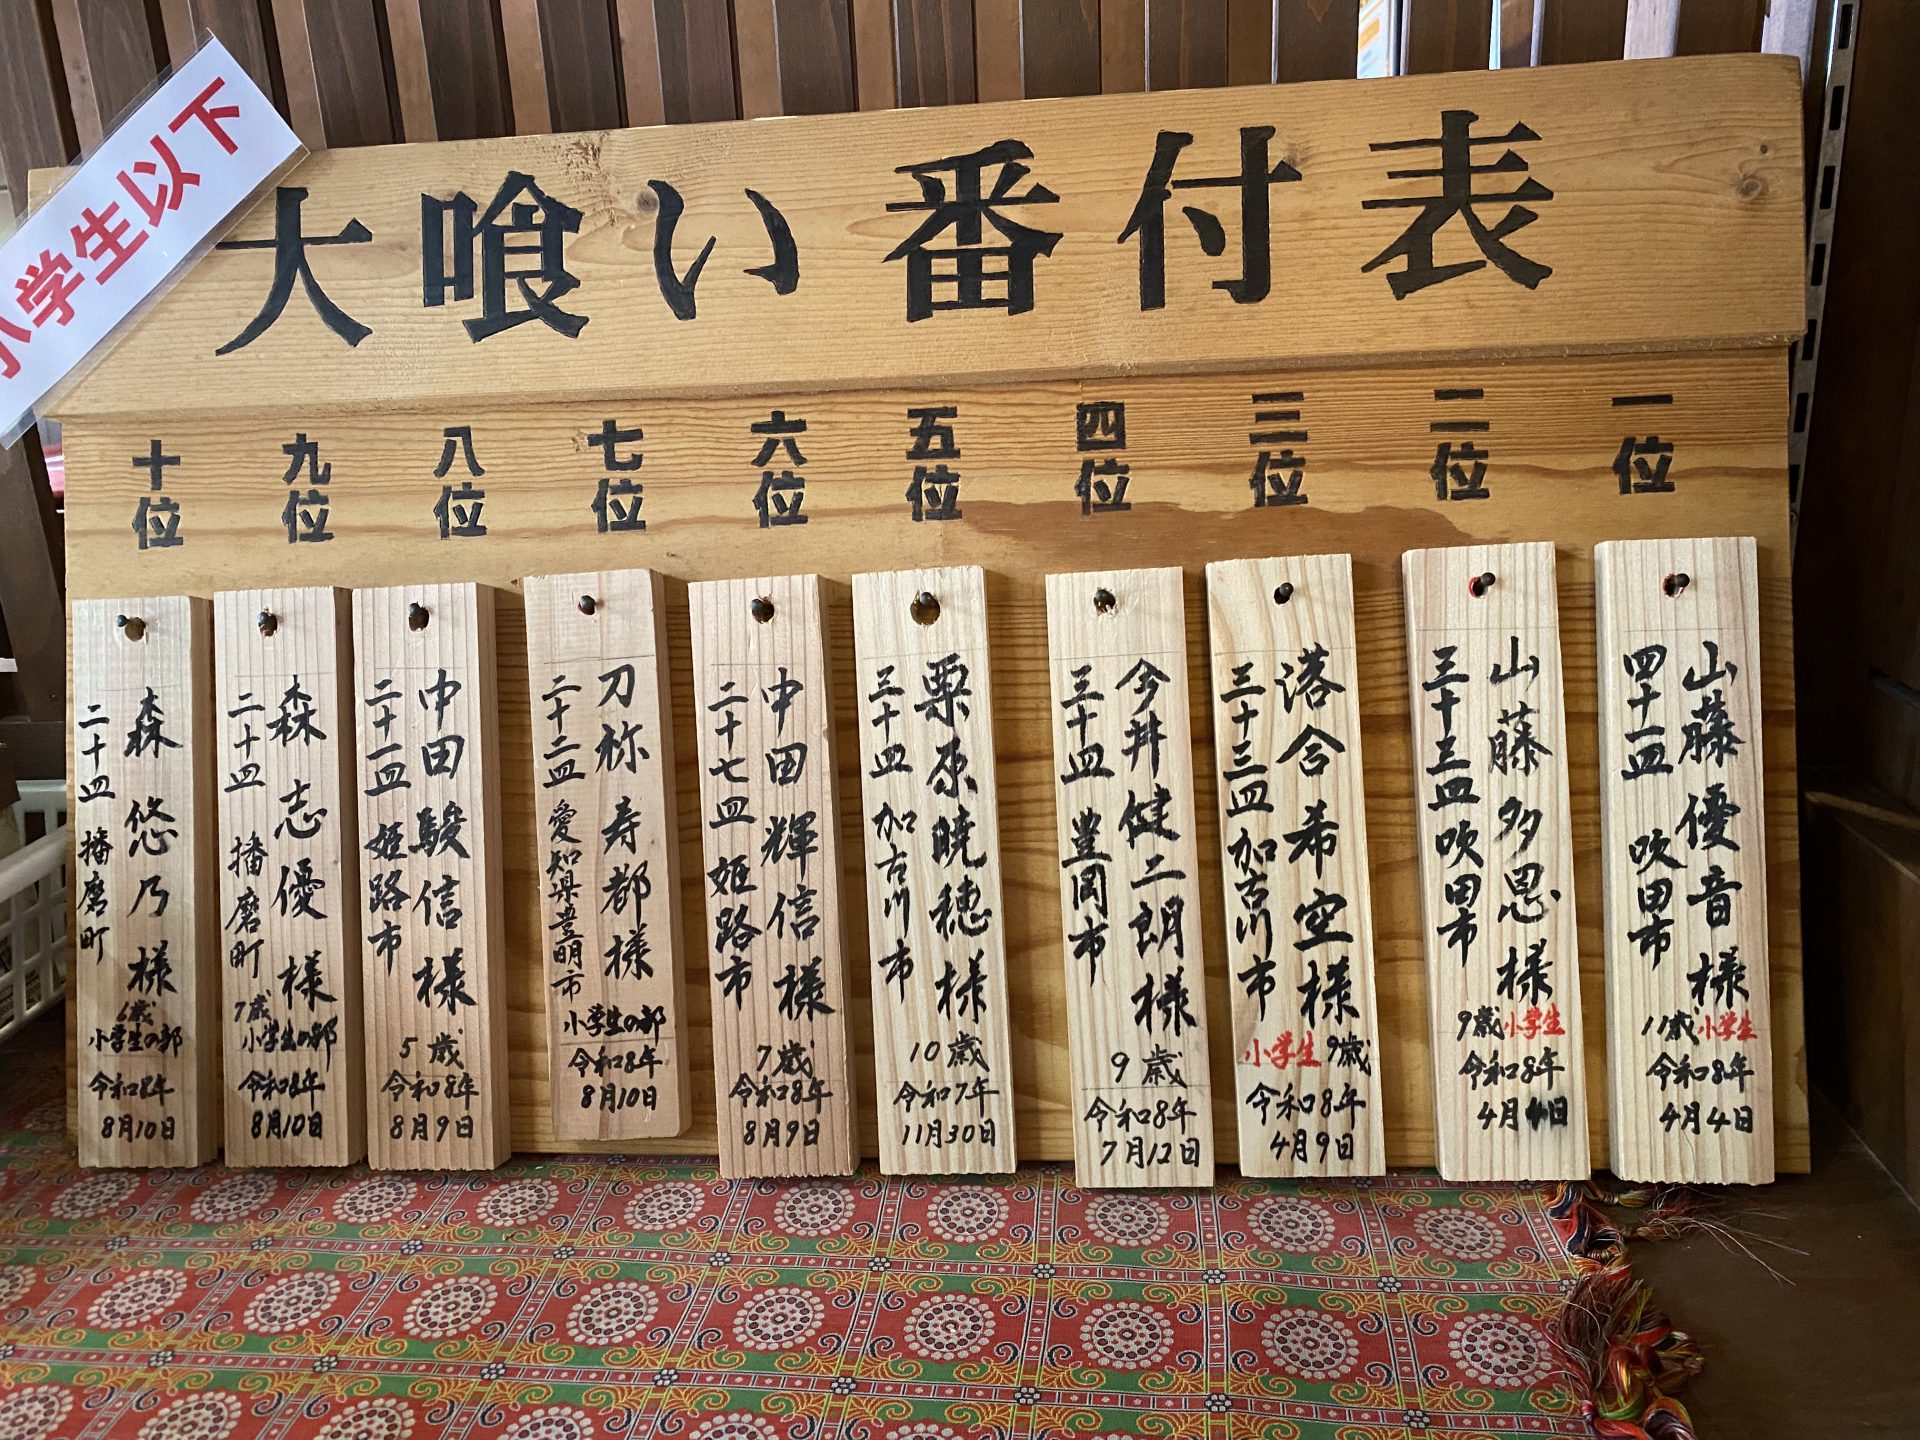 小学生以下
大喰い番付表
一位
山藤優音様
四十一皿 吹田市
11歳 小学生
令和8年
4月4日
二位
山藤多恩様
三十三皿 吹田市
9歳 小学生
令和8年
4月4日
三位
落合希空様
三十三皿 加古川市
小学生 9歳
令和8年
4月9日
四位
今井健二朗様
三十皿 豊岡市
9歳
令和8年
7月12日
五位
栗原暁穂様
三十皿 加古川市
10歳
令和7年
11月30日
六位
中田輝信様
二十七皿 姫路市
7歳
令和8年
8月9日
七位
刀祢寿都様
二十二皿 愛知県豊明市
小学生の部
令和8年
8月10日
八位
中田駿信様
二十一皿 姫路市
5歳
令和8年
8月9日
九位
森志優様
二十皿 播磨町
7歳
小学生の部
令和8年
8月10日
十位
森悠乃様
二十皿 播磨町
6歳
小学生の部
令和8年
8月10日